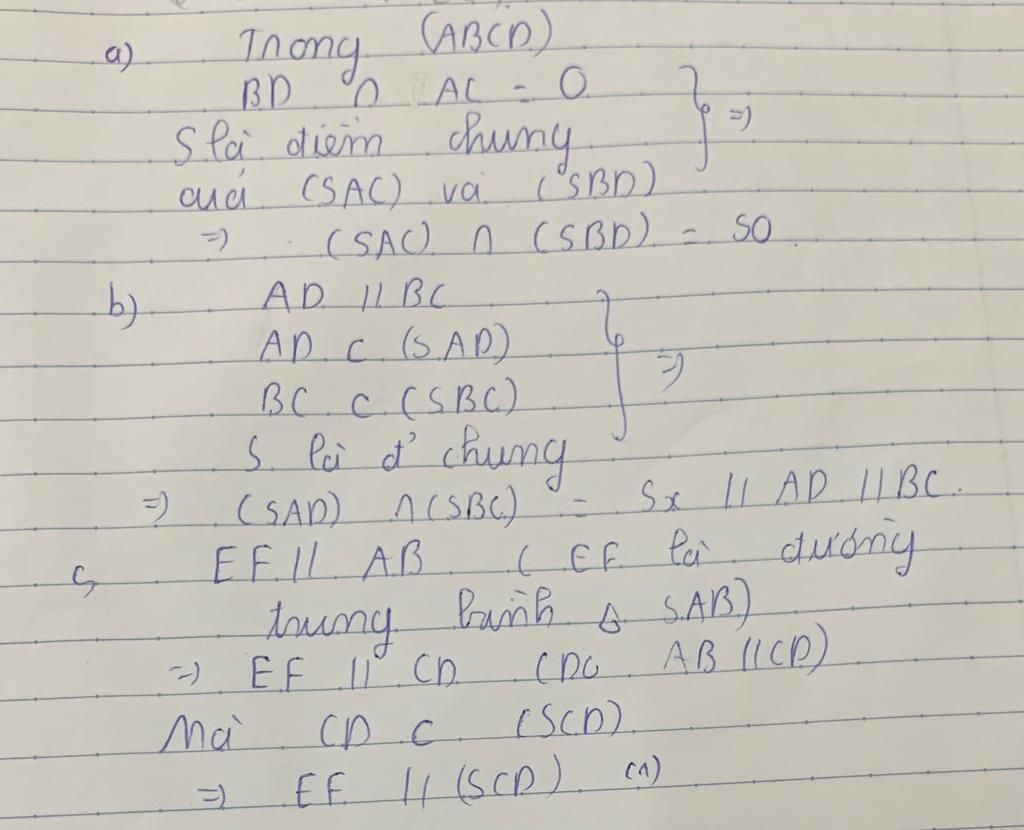 a) Trong (ABCD)
BD ∩ AC = O
S là điểm chung
của (SAC) và (SBD)
=>
=> (SAC) ∩ (SBD) = SO
b) AD // BC
AD ⊂ (SAD)
BC ⊂ (SBC)
=>
S là đ' chung
=> (SAD) ∩ (SBC) = Sx // AD // BC.
c, EF // AB ( EF là đường
trung bình Δ SAB)
=> EF // CD (Do AB // CD)
Mà CD ⊂ (SCD)
=> EF // (SCD) (1)